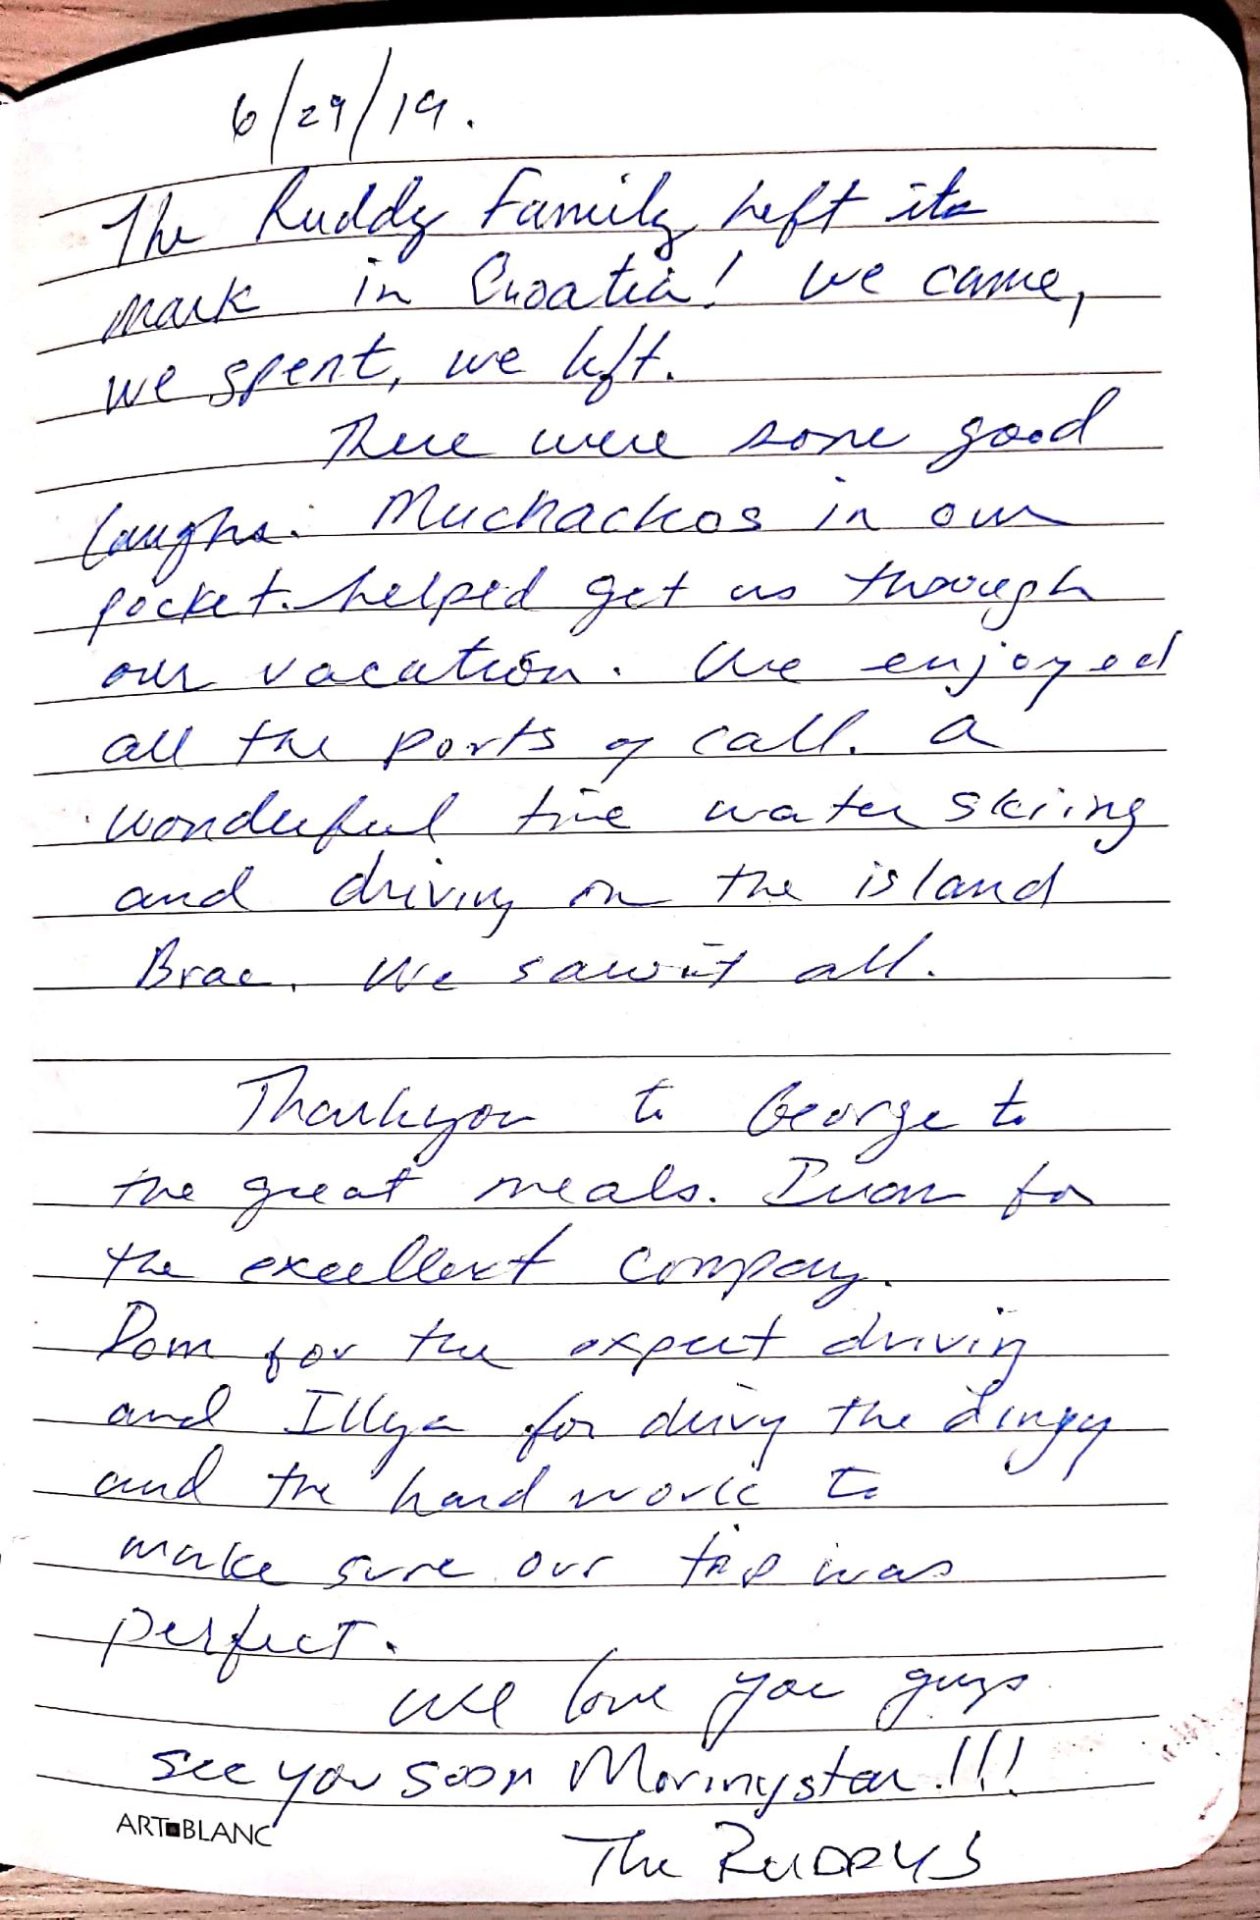 6/29/19.
The Ruddy Family left its
mark in Croatia! We came,
we spent, we left.
There were some good
laughs. Muchackos in our
pocket. helped get us through
our vacation. We enjoyed
all the ports of call. A
wonderful time water skiing
and driving on the island
Brac. We saw it all.
Thankyou to George to
the great meals. Ivan for
the excellent company.
Dom for the expert driving
and Illya for drivy the dingy
and the hard work to
make sure our trip was
perfect.
We love you guys
see you soon Morinystar.!!!
ART BLANC
The RUDDYS